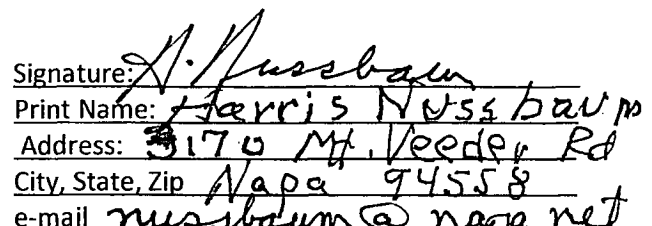 Signature: H. Nussbaum
Print Name: Harris Nussbaum
Address: 3170 Mt. Veeder Rd
City, State, Zip Napa 94558
e-mail nussbaum@napa.net